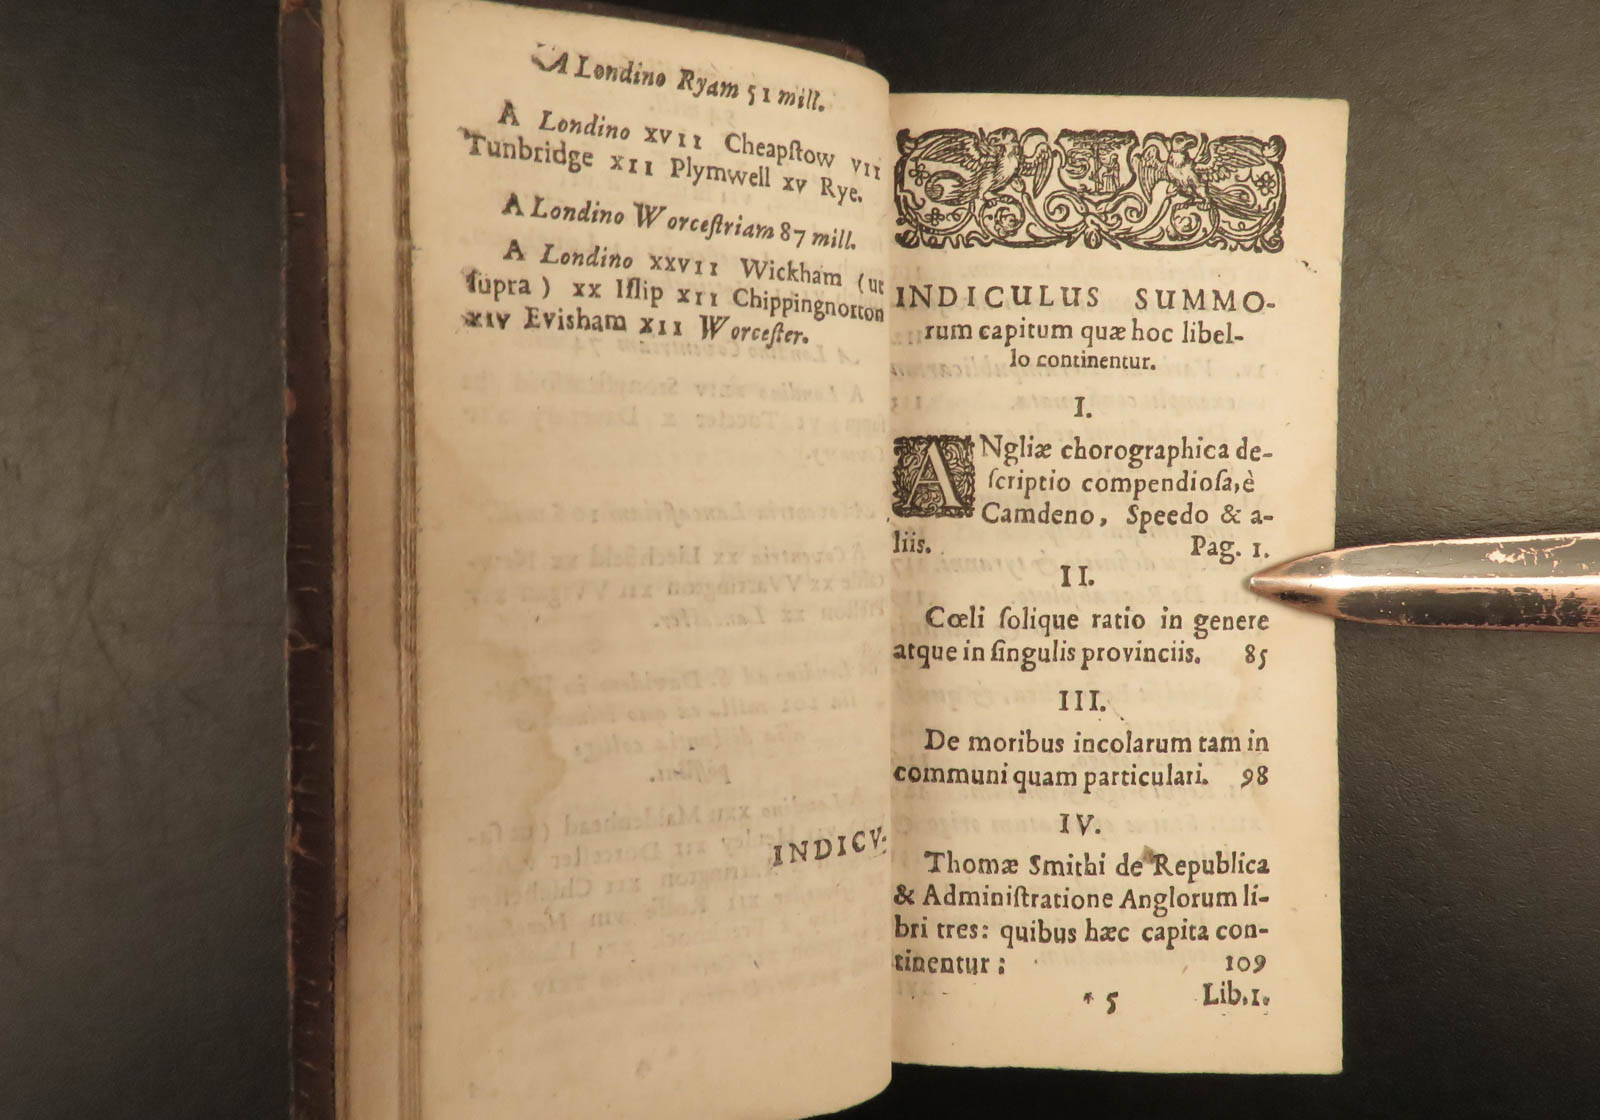 A Londino Ryam 51 mill.
A Londino XVII Cheapſtow VII
Tunbridge XII Plymwell XV Rye.
A Londino Worceſtriam 87 mill.
A Londino XXVII Wickham (ut
ſupra) XX Iſlip XII Chippingnorton
XIV Eviſham XII Worceſter.
INDICU-
INDICULUS SUMMO-
rum capitum quæ hoc libel-
lo continentur.
I.
ANgliæ chorographica de-
ſcriptio compendioſa, è
Camdeno, Speedo & a-
liis. Pag. 1.
II.
Cœli ſolique ratio in genere
atque in ſingulis provinciis. 85
III.
De moribus incolarum tam in
communi quam particulari. 98
IV.
Thomæ Smithi de Republica
& Adminiſtratione Anglorum li-
bri tres: quibus hæc capita con-
tinentur: 109
* 5 Lib. 1.